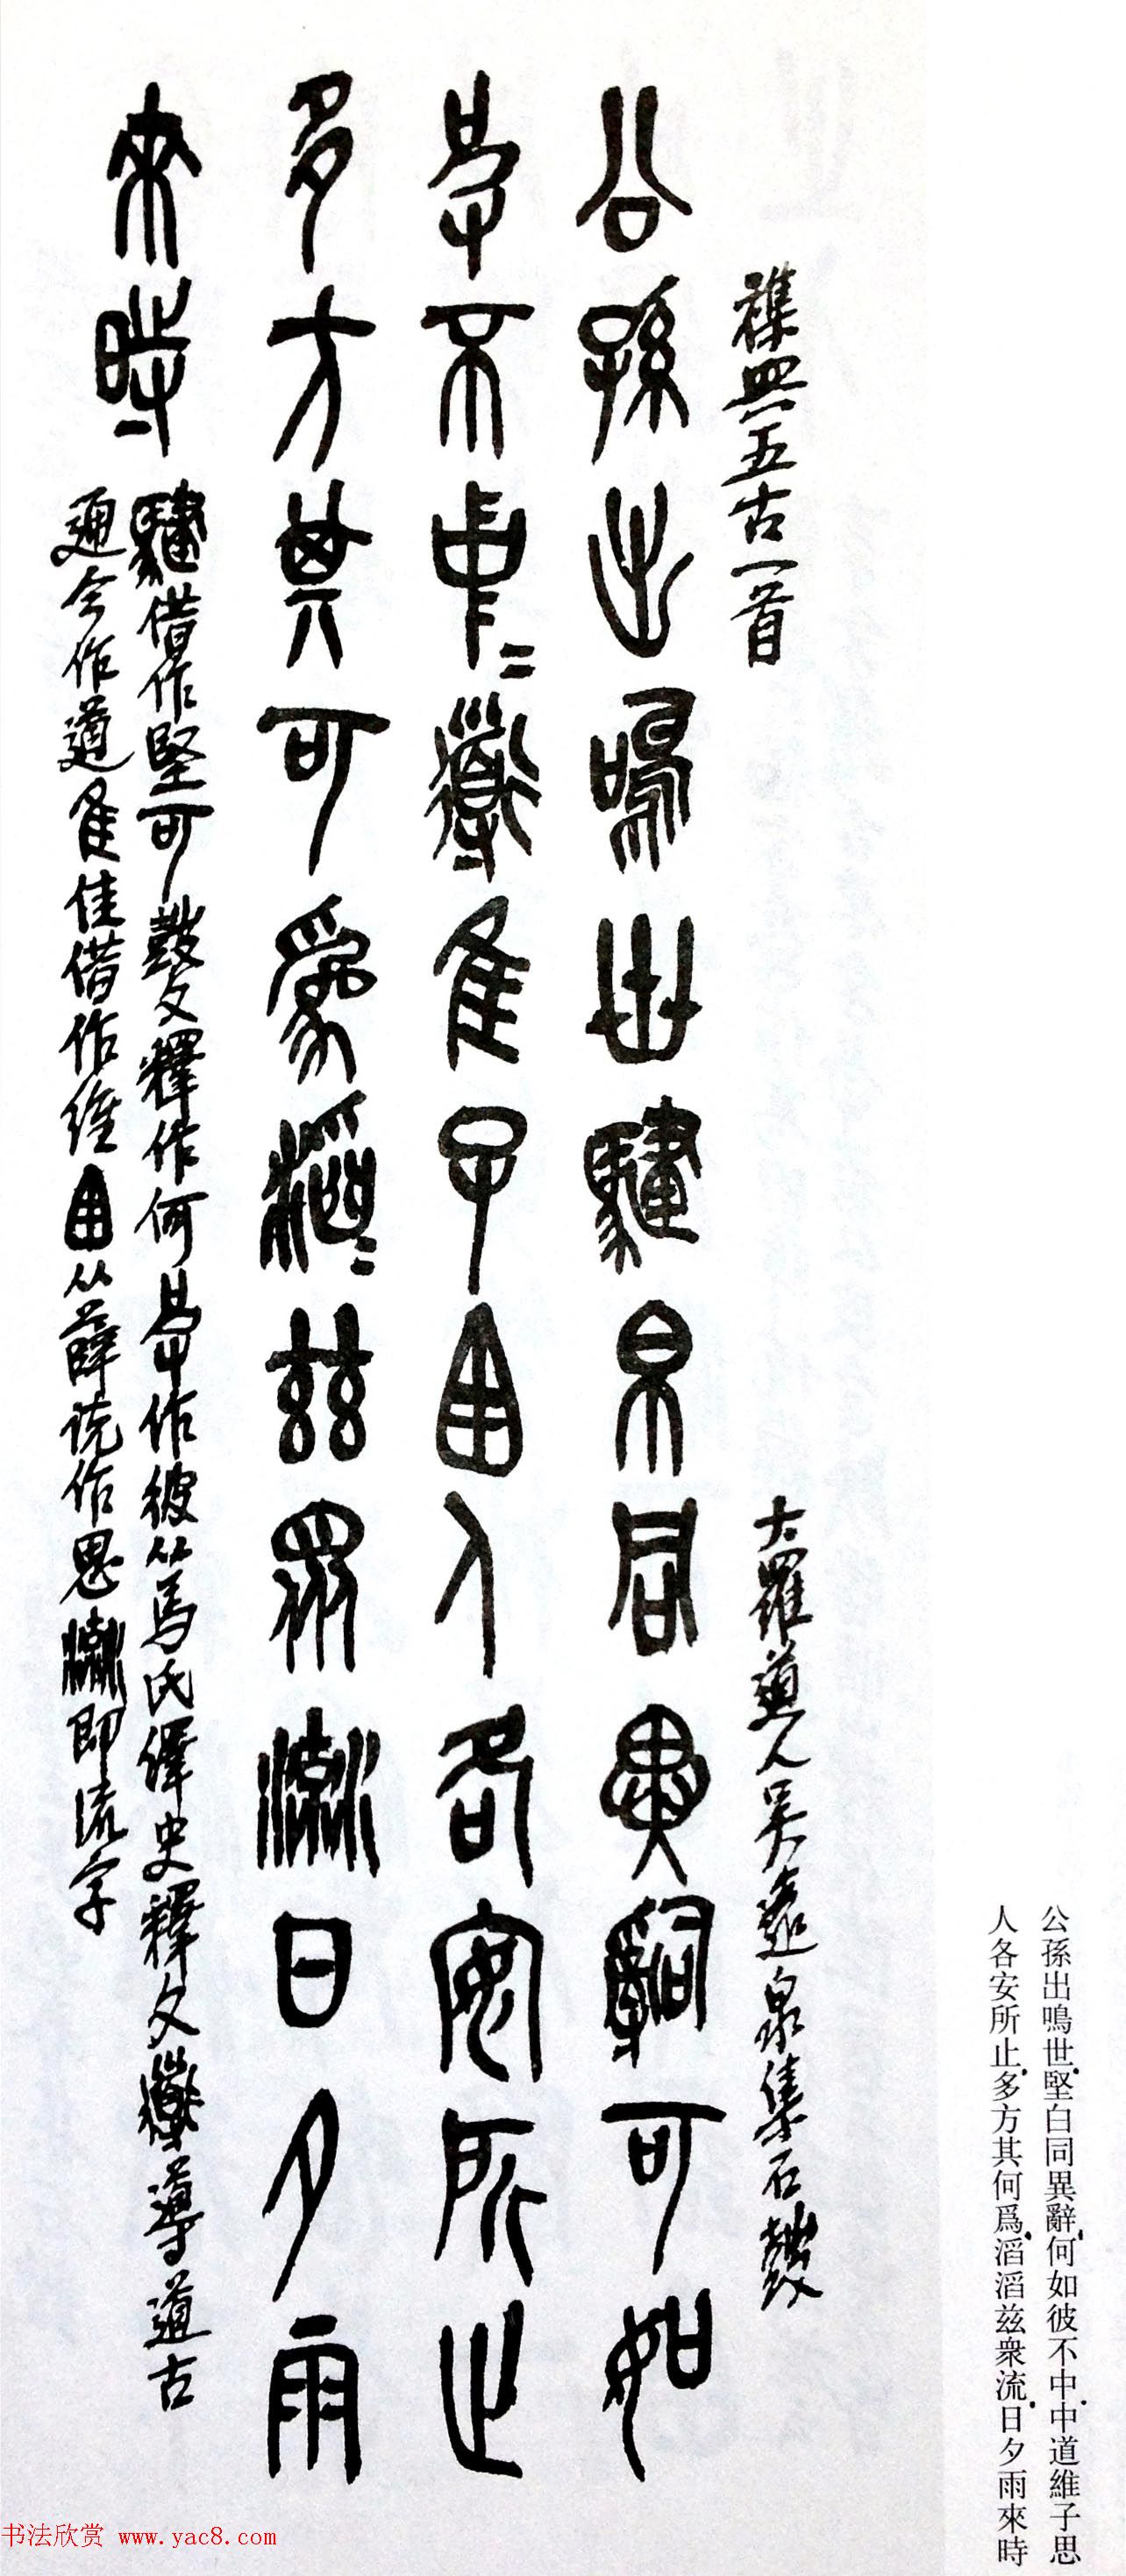 襍興四五古一首
大羅道人吳蘧泉集石鼓
公孫出鳴世驌白同異辭可如
彼不中=導隹子思人各安所止
多方其可爲滔=兹衆流日夕雨
來時
驌借作堅可鼓文釋作何
作彼从馬氏繹史釋文導道古
通今作道隹隹借作維
从薛說作思
即流字
公孫出鳴世堅白同異辭何如彼不中中道維子思
人各安所止多方其何爲滔滔兹衆流日夕雨來時
书法欣赏 www.yac8.com